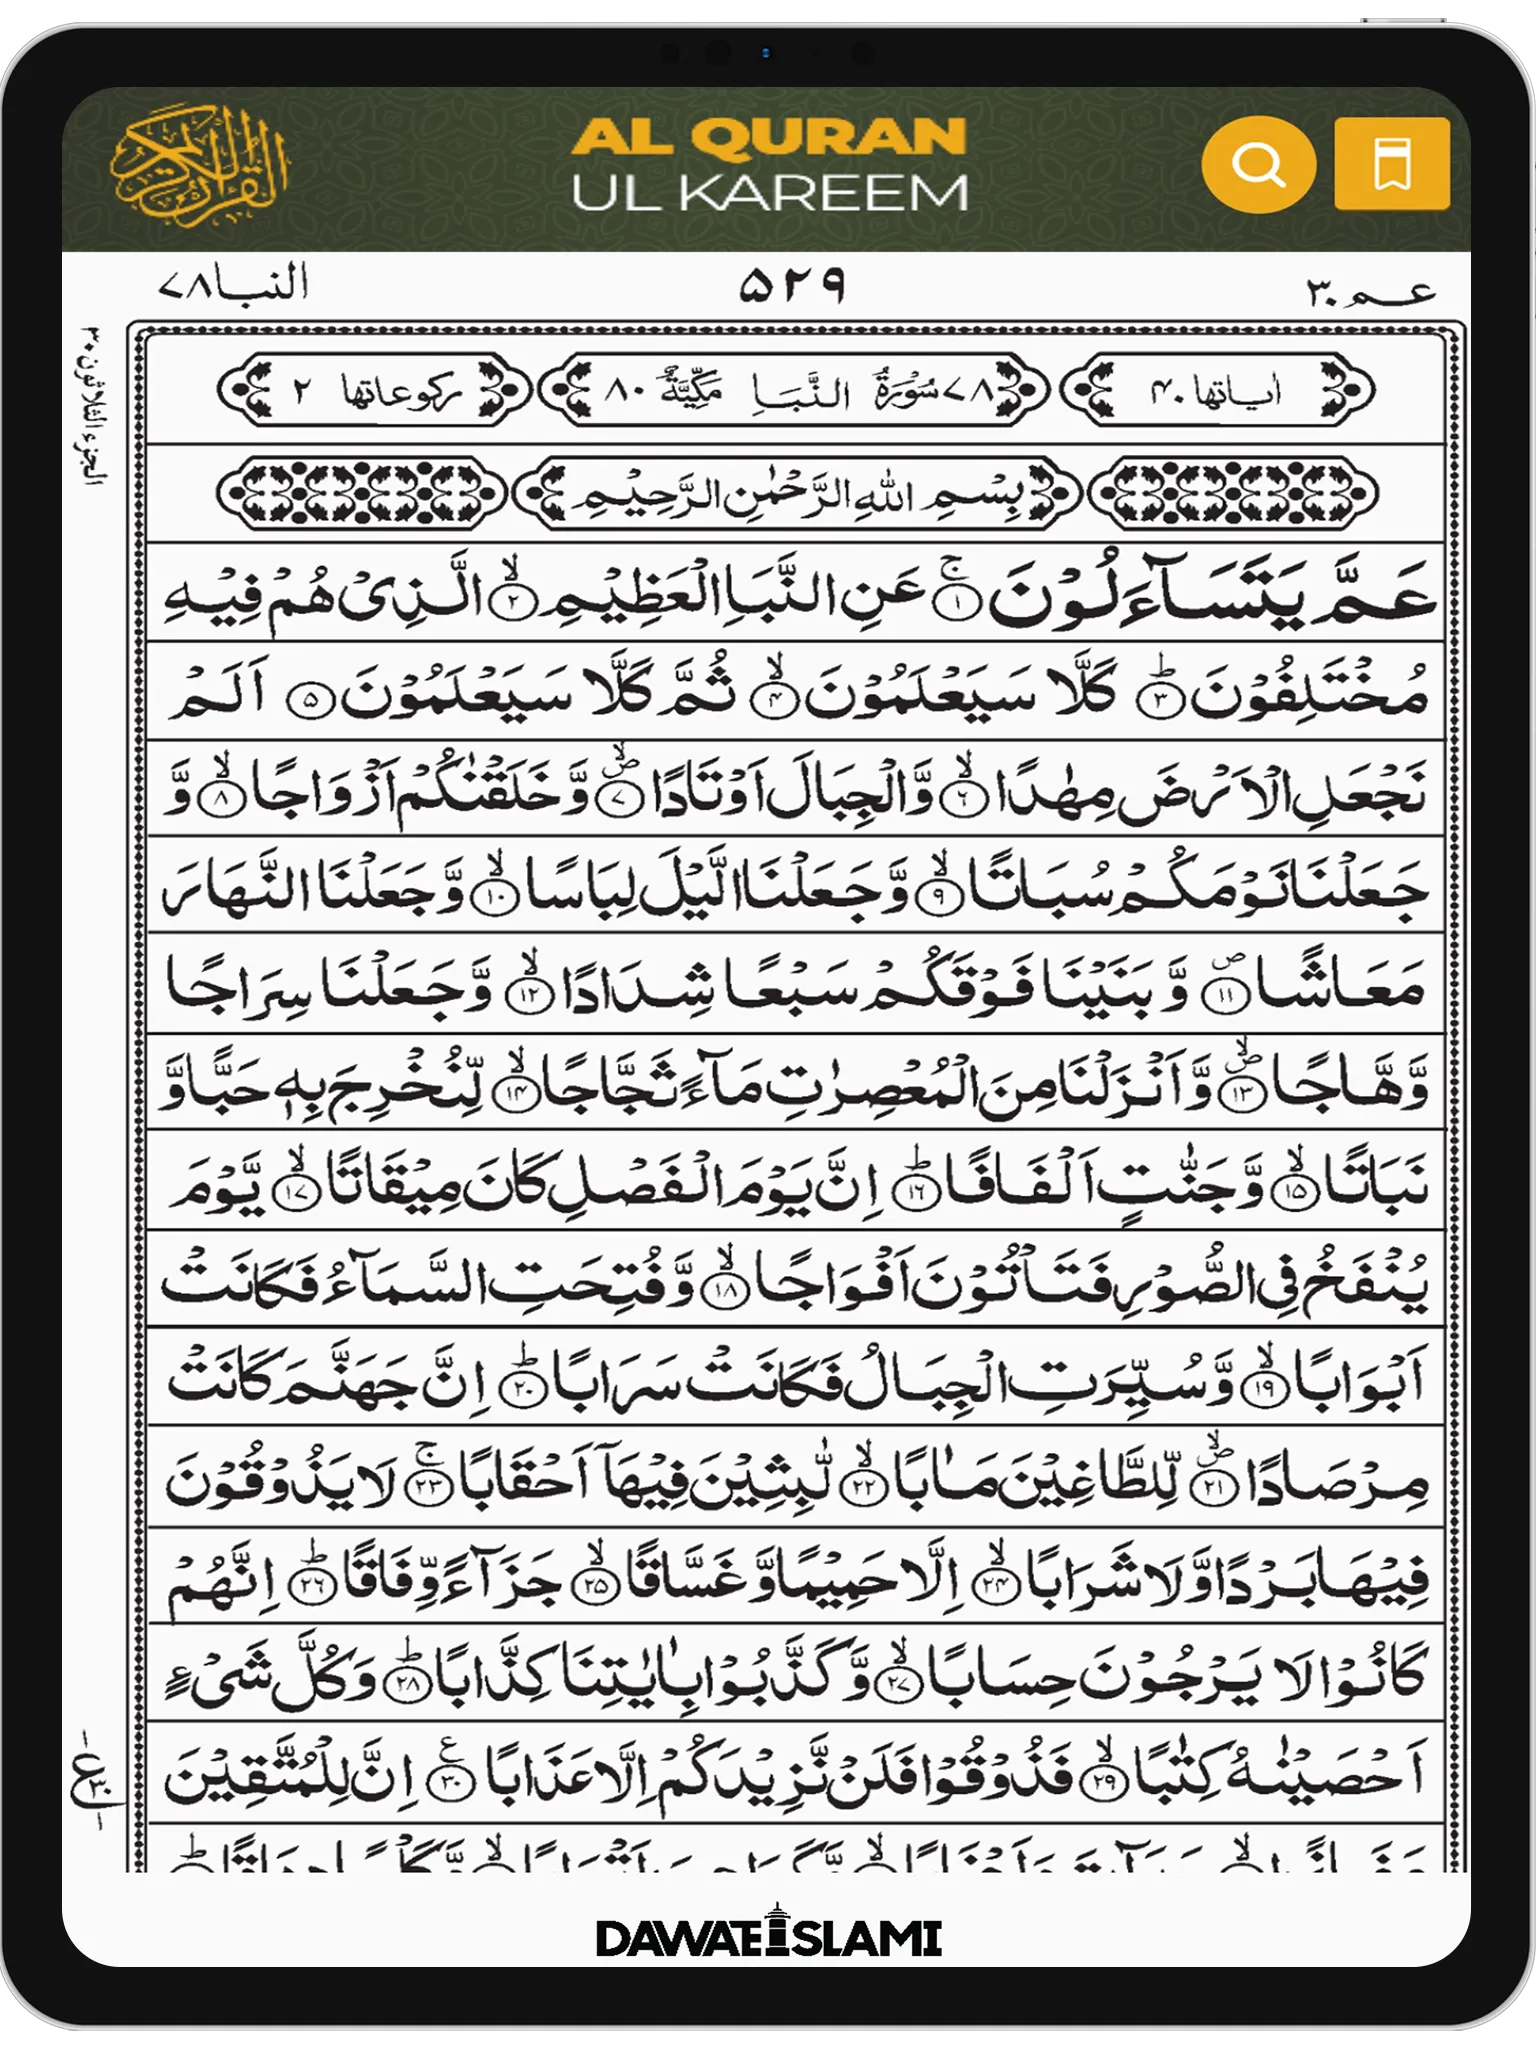 القرآن الكريم
AL QURAN
UL KAREEM
عـم ٣٠
٥٢٩
النبا ٧٨
الجزء الثلاثون ٣٠
اٰیاتها ۴۰
٧٨ سُوْرَةُ النَّبَاِ مَكِّيَّةٌ ٨٠
ركوعاتها ٢
بِسْمِ اللّٰهِ الرَّحْمٰنِ الرَّحِيْمِ
عَمَّ يَتَسَآءَلُوْنَ ۚ﴿۱﴾ عَنِ النَّبَاِ الْعَظِيْمِ ۙ﴿۲﴾ الَّذِىْ هُمْ فِيْهِ
مُخْتَلِفُوْنَ ؕ﴿۳﴾ كَلَّا سَيَعْلَمُوْنَ ۙ﴿۴﴾ ثُمَّ كَلَّا سَيَعْلَمُوْنَ ﴿۵﴾ اَلَمْ
نَجْعَلِ الْاَرْضَ مِهٰدًا ۙ﴿۶﴾ وَّ الْجِبَالَ اَوْتَادًا ۪ۙ﴿۷﴾ وَّ خَلَقْنٰكُمْ اَزْوَاجًا ۙ﴿۸﴾ وَّ
جَعَلْنَا نَوْمَكُمْ سُبَاتًا ۙ﴿۹﴾ وَّ جَعَلْنَا الَّيْلَ لِبَاسًا ۙ﴿۱۰﴾ وَّ جَعَلْنَا النَّهَارَ
مَعَاشًا ۪﴿۱۱﴾ وَّ بَنَيْنَا فَوْقَكُمْ سَبْعًا شِدَادًا ۙ﴿۱۲﴾ وَّ جَعَلْنَا سِرَاجًا
وَّهَّاجًا ۪ۙ﴿۱۳﴾ وَّ اَنْزَلْنَا مِنَ الْمُعْصِرٰتِ مَآءً ثَجَّاجًا ۙ﴿۱۴﴾ لِّنُخْرِجَ بِهٖ حَبًّا وَّ
نَبَاتًا ۙ﴿۱۵﴾ وَّ جَنّٰتٍ اَلْفَافًا ؕ﴿۱۶﴾ اِنَّ يَوْمَ الْفَصْلِ كَانَ مِيْقَاتًا ۙ﴿۱۷﴾ يَّوْمَ
يُنْفَخُ فِى الصُّوْرِ فَتَاْتُوْنَ اَفْوَاجًا ۙ﴿۱۸﴾ وَّ فُتِحَتِ السَّمَآءُ فَكَانَتْ
اَبْوَابًا ۙ﴿۱۹﴾ وَّ سُيِّرَتِ الْجِبَالُ فَكَانَتْ سَرَابًا ؕ﴿۲۰﴾ اِنَّ جَهَنَّمَ كَانَتْ
مِرْصَادًا ۪ۙ﴿۲۱﴾ لِّلطَّاغِيْنَ مَاٰبًا ۙ﴿۲۲﴾ لّٰبِثِيْنَ فِيْهَاۤ اَحْقَابًا ۚ﴿۲۳﴾ لَا يَذُوْقُوْنَ
فِيْهَا بَرْدًا وَّ لَا شَرَابًا ۙ﴿۲۴﴾ اِلَّا حَمِيْمًا وَّ غَسَّاقًا ۙ﴿۲۵﴾ جَزَآءً وِّفَاقًا ؕ﴿۲۶﴾ اِنَّهُمْ
كَانُوْا لَا يَرْجُوْنَ حِسَابًا ۙ﴿۲۷﴾ وَّ كَذَّبُوْا بِاٰيٰتِنَا كِذَّابًا ؕ﴿۲۸﴾ وَ كُلَّ شَىْءٍ
اَحْصَيْنٰهُ كِتٰبًا ۙ﴿۲۹﴾ فَذُوْقُوْا فَلَنْ نَّزِيْدَكُمْ اِلَّا عَذَابًا ﴿۳۰﴾ اِنَّ لِلْمُتَّقِيْنَ
DAWATEISLAMI